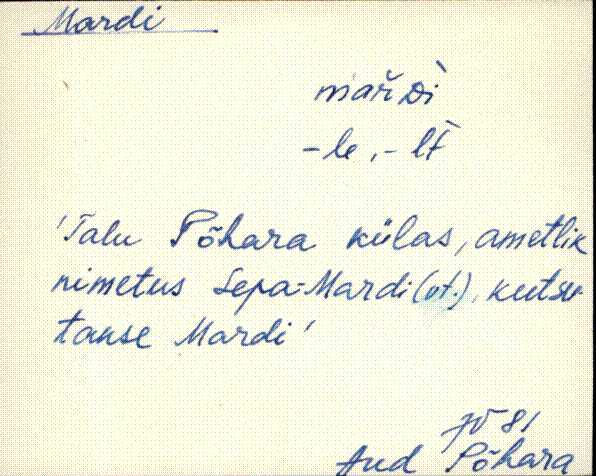 Mardi
mař Di
-le, -lt
'Talu Põhara külas, ametlik
nimetus Sepa-Mardi (vt.), kutsu-
takse Mardi'
JV 81
Aud Põhara